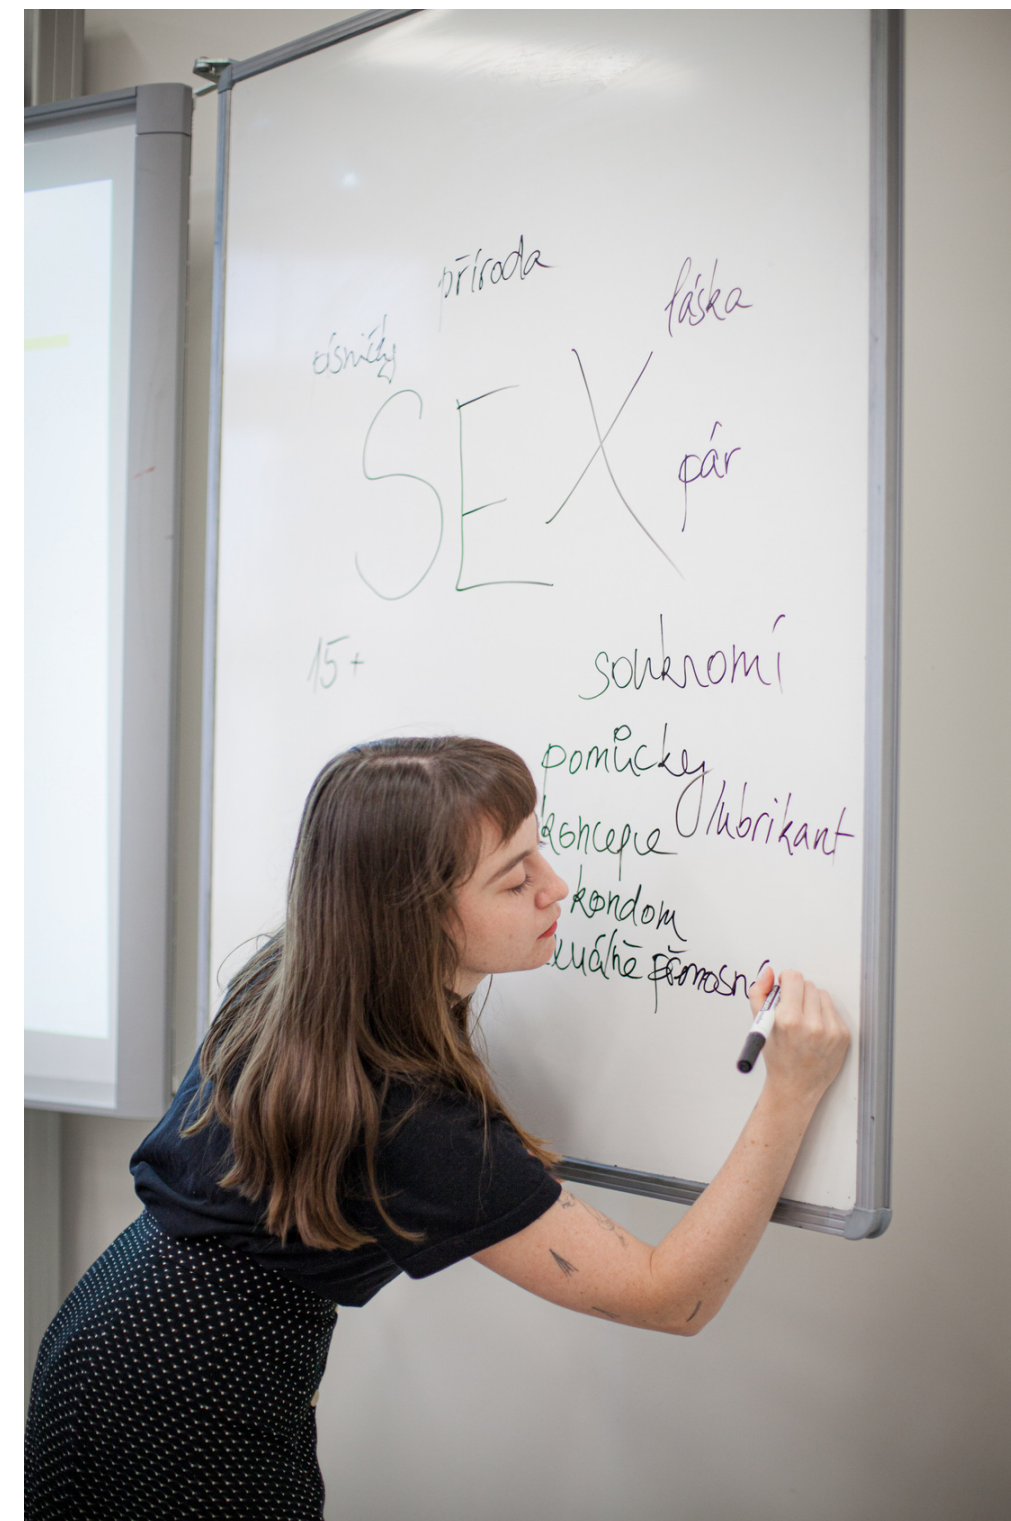 příroda
láska
písničky
SEX
pár
15+
soukromí
pomůcky
lubrikant
koncepce
kondom
přenosn